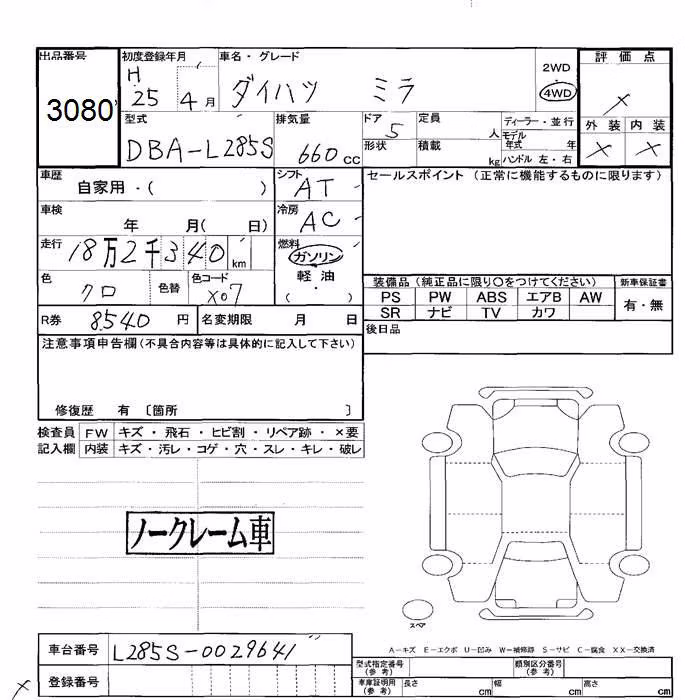 出品番号 初度登録年月 車名・グレード 2WD 評価点
3080 H 25 4月 ダイハツ ミラ 4WD ×
型式 排気量 ドア 定員 ディーラー・並行 外装 内装
DBA-L285S 660cc 5 人 モデル年式 年 × ×
形状 積載 kg ハンドル 左・右
車歴 自家用・( ) シフト AT セールスポイント (正常に機能するものに限ります)
車検 年 月( 日) 冷房 AC
走行 18万2千340km 燃料 ガソリン
軽油
色 クロ 色替 色コード X07 ・( ) 装備品 (純正品に限り○をつけてください) 新車保証書
PS PW ABS エアB AW 有・無
SR ナビ TV カワ
R券 8540円 名変期限 月 日 後日品
注意事項申告欄(不具合内容等は具体的に記入して下さい)
修復歴 有 〔箇所 〕
検査員 FW キズ・飛石・ヒビ割・リペア跡・×要
記入欄 内装 キズ・汚レ・コゲ・穴・スレ・キレ・破レ
ノークレーム車
スペア
A-キズ E-エクボ U-凹み W-補修跡 S-サビ C-腐食 XX-交換済
車台番号 L285S-0029641 型式指定番号(参考) 類別区分番号(参考)
登録番号 車庫証明用(参考) 長さ cm 幅 cm 高さ cm
×